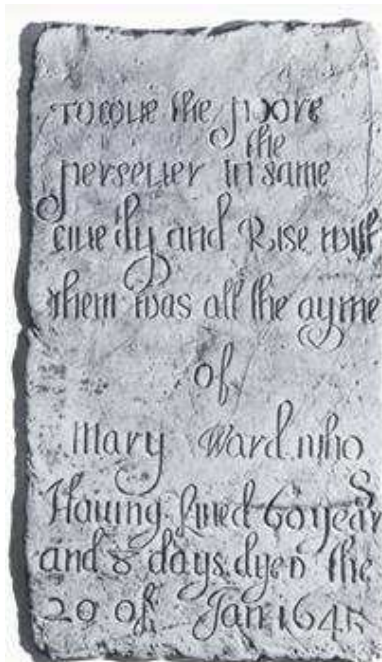 TO LOUE the poore
the
perseuer in same
liue dy and Rise with
them was all the ayme
of
Mary Ward who
Hauing liued 60 years
and 8 days dyed the
20 of Jan 1645